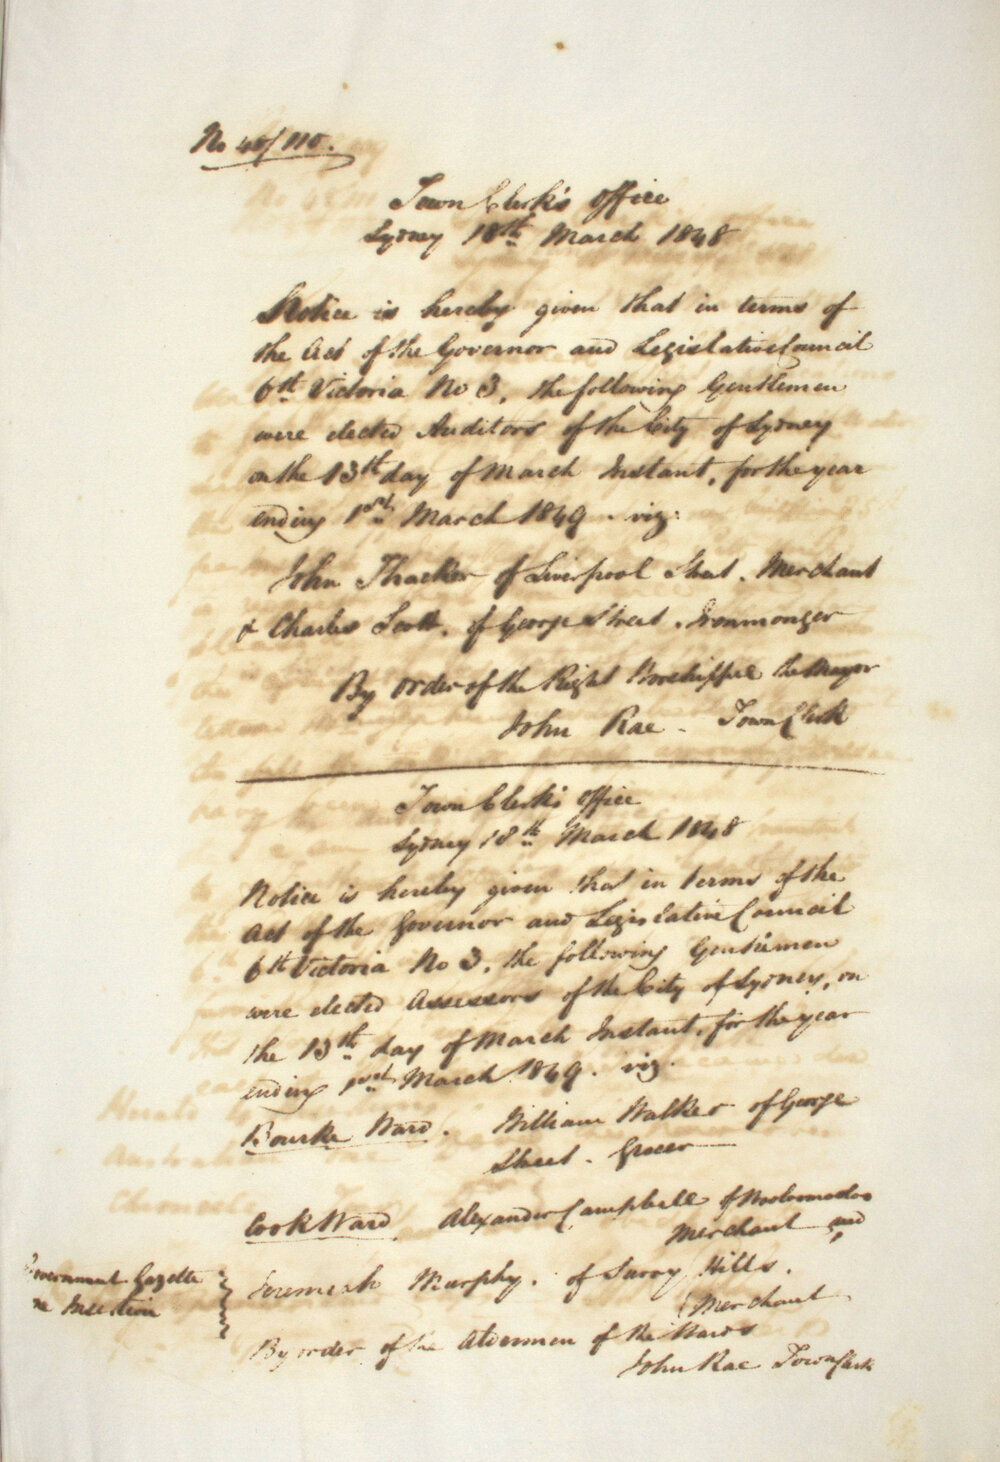 No 48/110.
Town Clerk's Office
Sydney 18th March 1848
Notice is hereby given that in terms of
the Act of the Governor and Legislative Council
6th Victoria No 3, the following Gentlemen
were elected Auditors of the City of Sydney
on the 13th day of March Instant, for the year
ending 1st March 1849. viz:
John Thacker of Liverpool Street. Merchant
& Charles Scott. of George Street. Ironmonger
By order of the Right Worshipful the Mayor
John Rae - Town Clerk
Town Clerk's Office
Sydney 18th March 1848
Notice is hereby given that in terms of the
Act of the Governor and Legislative Council
6th Victoria No 3, the following Gentlemen
were elected Assessors of the City of Sydney, on
the 13th day of March Instant, for the year
ending 1st March 1849. viz.
Bourke Ward. William Walker of George
Street. Grocer
Cook Ward Alexander Campbell of Wooloomooloo
Merchant and
Jeremiah Murphy. of Surry Hills.
Merchant
Government Gazette
Insertion
By order of the Aldermen of the Wards
John Rae Town Clerk